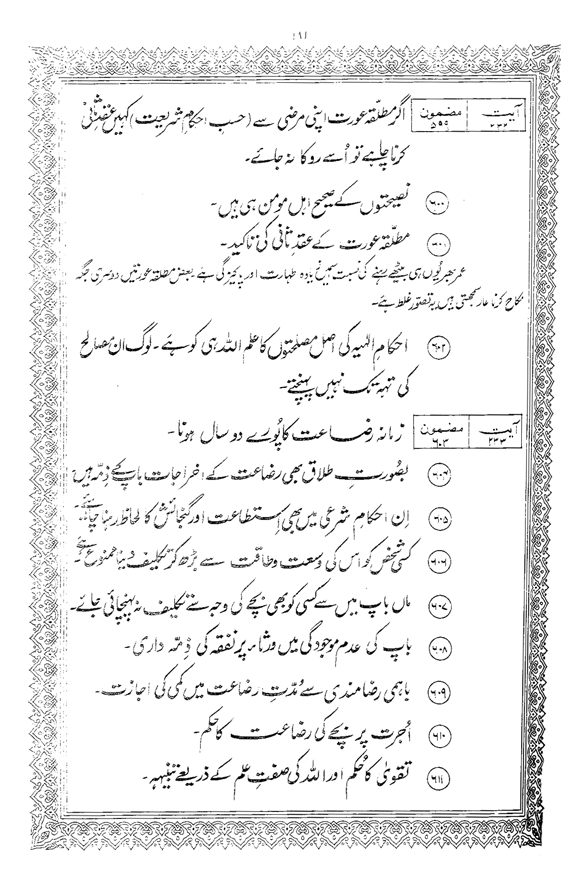 ۱۶۱
آیت ۲۳۲ مضمون ۵۹۹ اگر مطلّقہ عورت اپنی مرضی سے (حسب احکامِ شریعت) کہیں عقدِثانی
کرنا چاہے تو اُسے روکا نہ جائے۔
۶۰۰ نصیحتوں کے صحیح اہل مومن ہی ہیں۔
۶۰۱ مطلّقہ عورت کے عقدِ ثانی کی تاکید۔
عمر بھر یُوں ہی بیٹھے رہنے کی نسبت سے زیادہ طہارت اور پاکیزگی ہے بعض مطلقہ عورتیں دوسری جگہ
نکاح کرنا عار سمجھتی ہیں یہ تصوّر غلط ہے۔
۶۰۲ احکامِ الٰہیہ کی اصل مصلحتوں کا علم اللہ ہی کو ہے۔ لوگ ان مصالح
کی تہہ تک نہیں پہنچتے۔
آیت ۲۳۳ مضمون ۶۰۳ زمانہ رضاعت کا پُورے دو سال ہونا۔
۶۰۴ بصُورتِ طلاق بھی رضاعت کے اخراجات باپ کے ذِمّہ ہیں
۶۰۵ اِن احکامِ شرعی میں بھی اِستطاعت اور گنجائش کا لحاظ رہنا چاہئے۔
۶۰۶ کسی شخص کو اس کی وسعت و طاقت سے بڑھ کر تکلیف دینا ممنوع ہے۔
۶۰۷ ماں باپ میں سے کسی کو بھی بچّے کی وجہ سے تکلیف نہ پہنچائی جائے۔
۶۰۸ باپ کی عدم موجودگی میں ورثاء پر نفقہ کی ذِمّہ داری۔
۶۰۹ باہمی رضامندی سے مُدّتِ رضاعت میں کمی کی اجازت۔
۶۱۰ اُجرت پر بچّے کی رضاعت کا حکم۔
۶۱۱ تقویٰ کا حُکم اور اللہ کی صفتِ علم کے ذریعے تنبیہہ۔